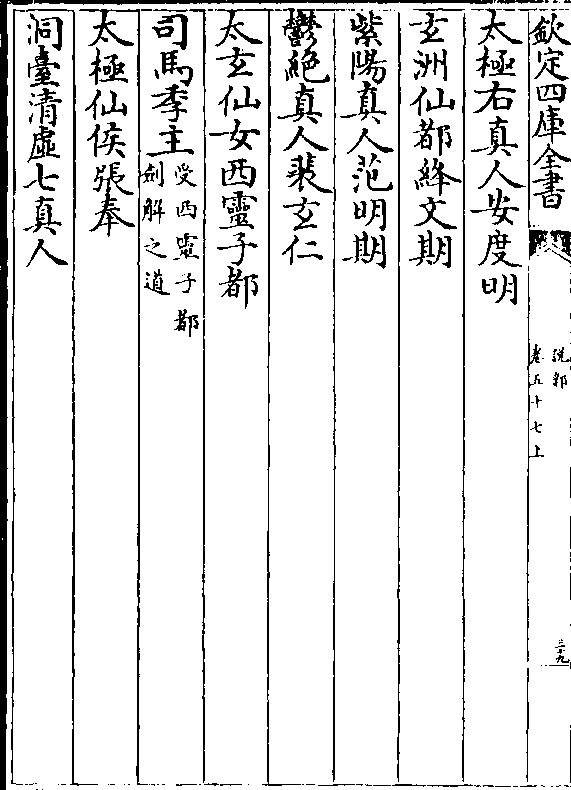 欽定四庫全書
說郛
卷五十七上
三十九
太極右真人安度明
玄洲仙都絳文期
紫陽真人范明期
鬱絶真人裴玄仁
太玄仙女西靈子都
司馬季主受西靈子都
劍解之道
太極仙侯張奉
洞臺清虛七真人